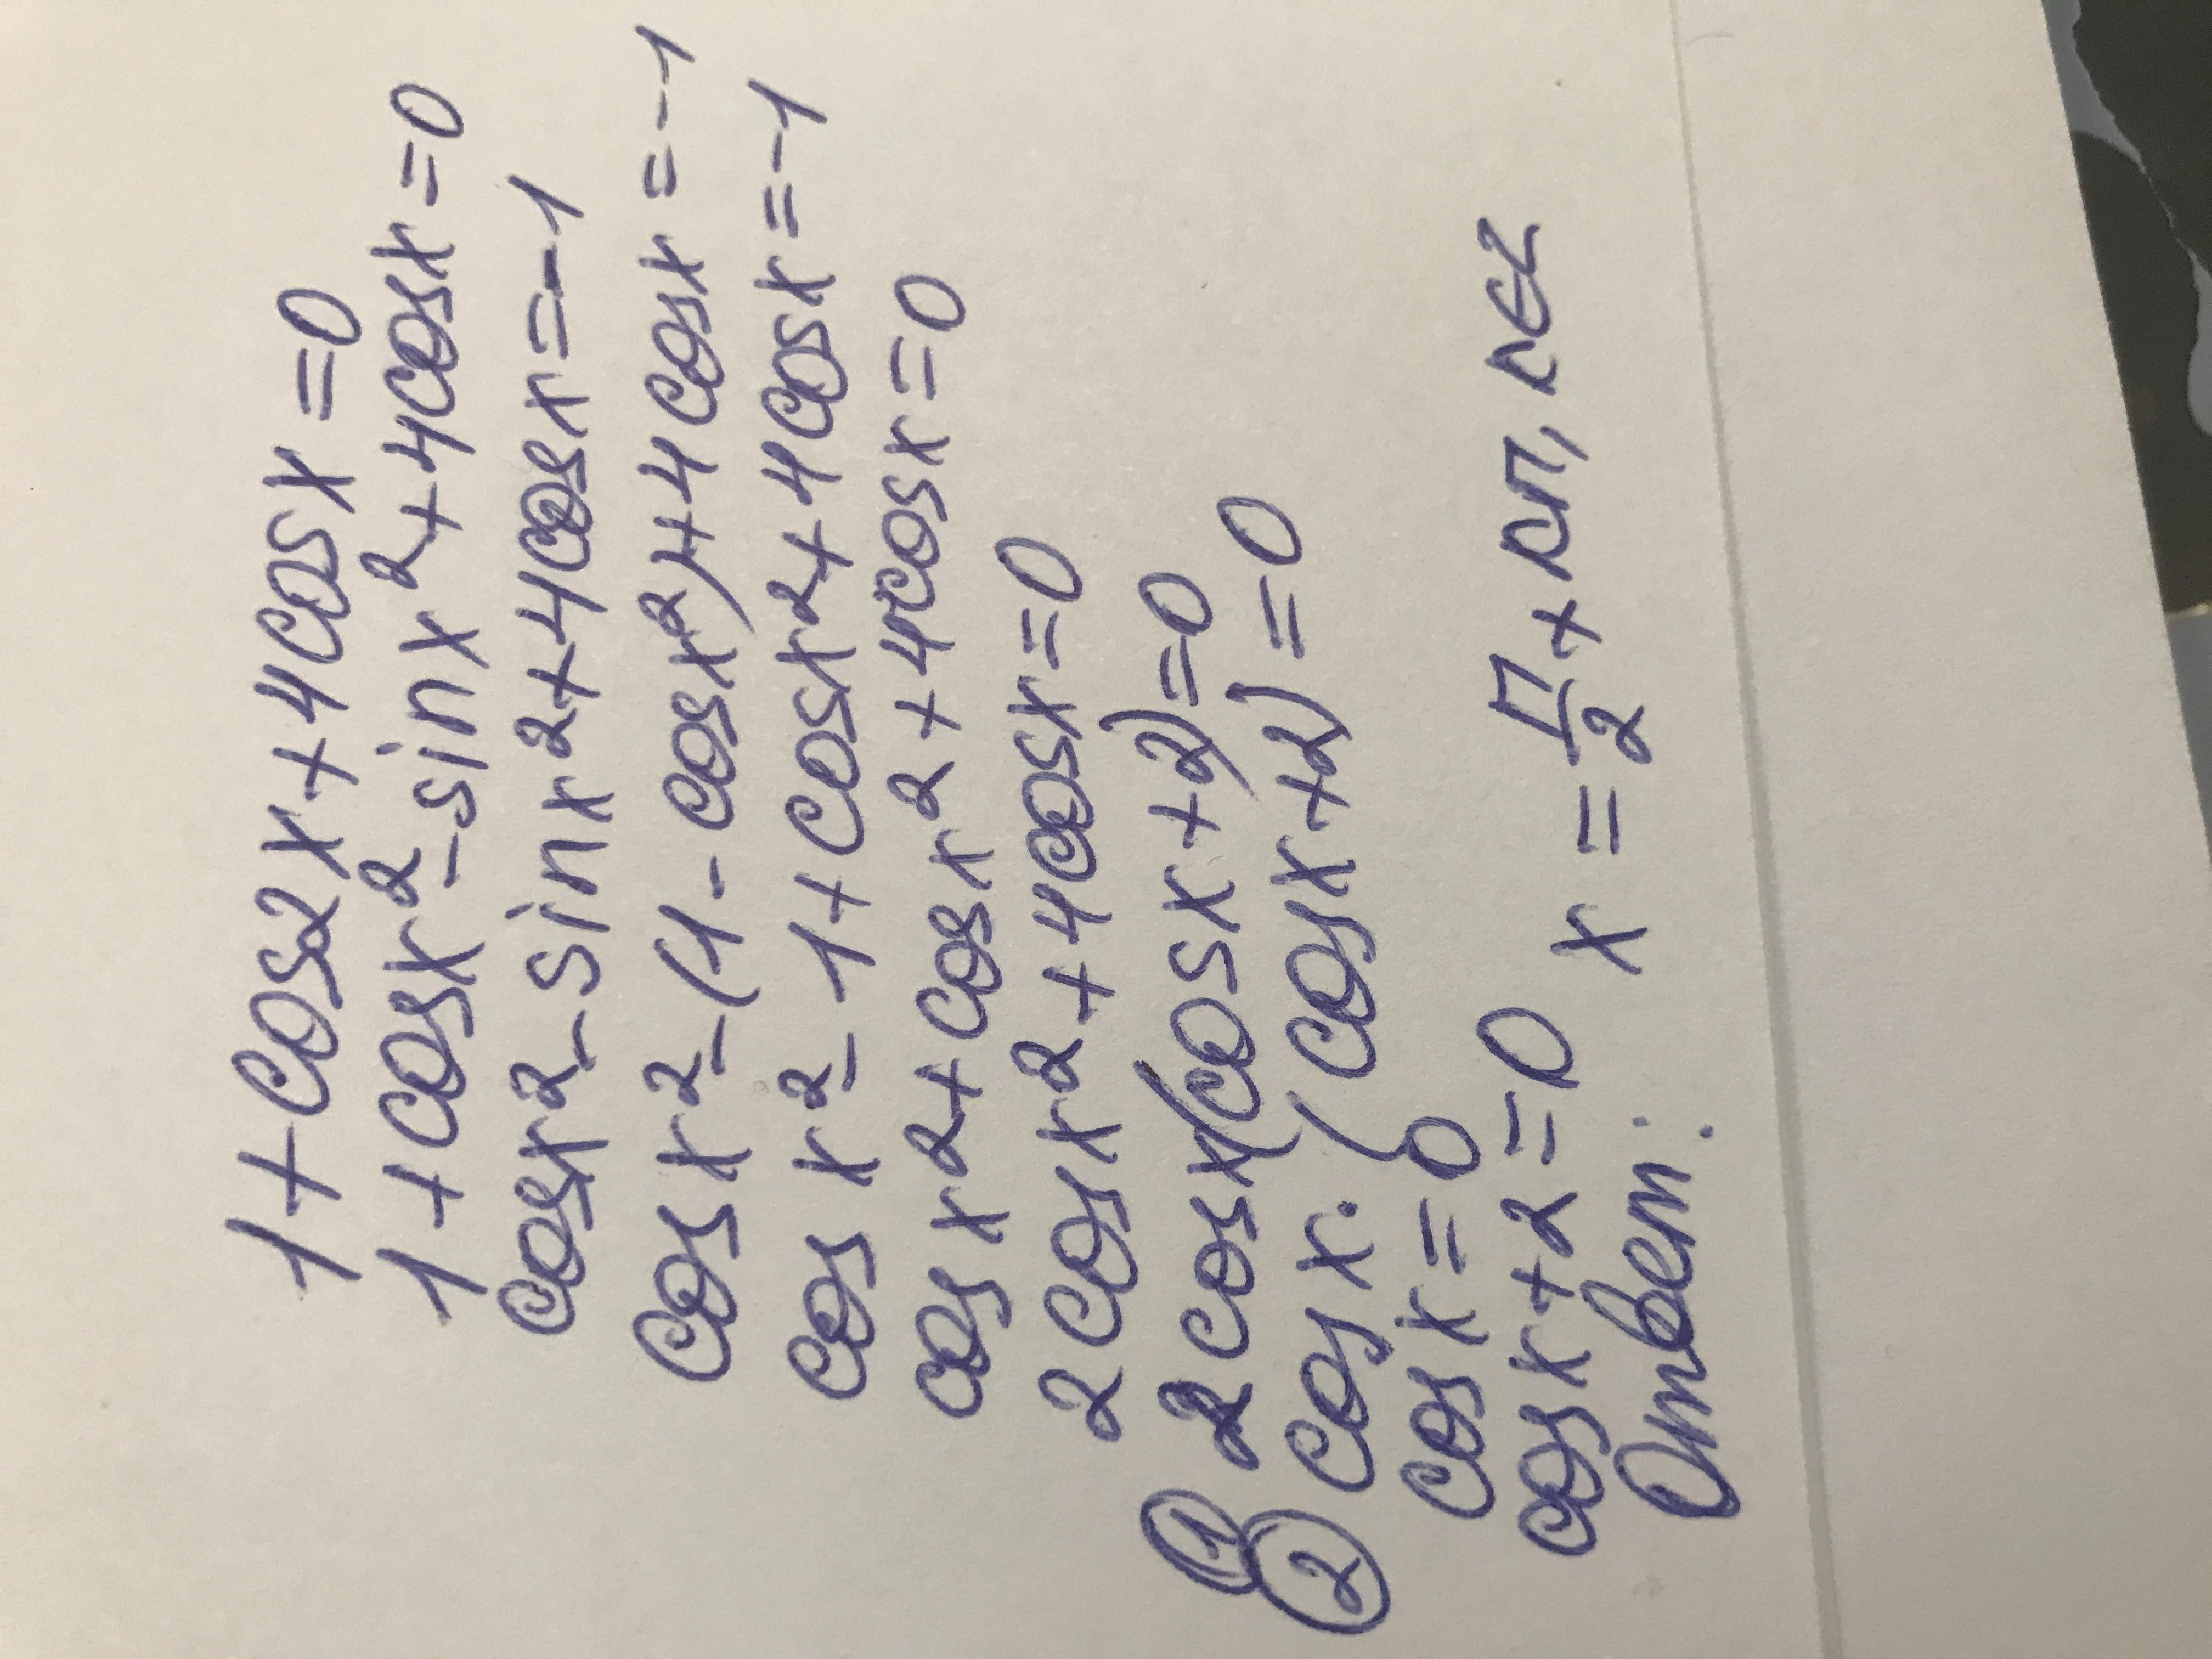 1+cos2x+4cosx=0
1+cosx²-sinx²+4cosx=0
cosx²-sinx²+4cosx=-1
cosx²-(1-cosx²)+4cosx=-1
cosx²-1+cosx²+4cosx=-1
cosx²+cosx²+4cosx=0
2cosx²+4cosx=0
① 2cosx(cosx+2)=0
② cosx·(cosx+2)=0
cosx=0
cosx+2=0 x=π/2+πn, n∈Z
Ответ: